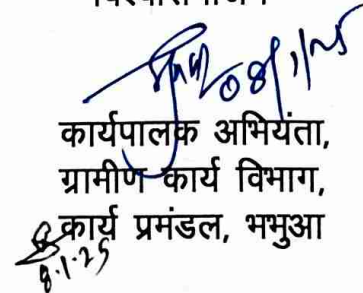 08/1/25
कार्यपालक अभियंता,
ग्रामीण कार्य विभाग,
कार्य प्रमंडल, भभुआ
8.1.25